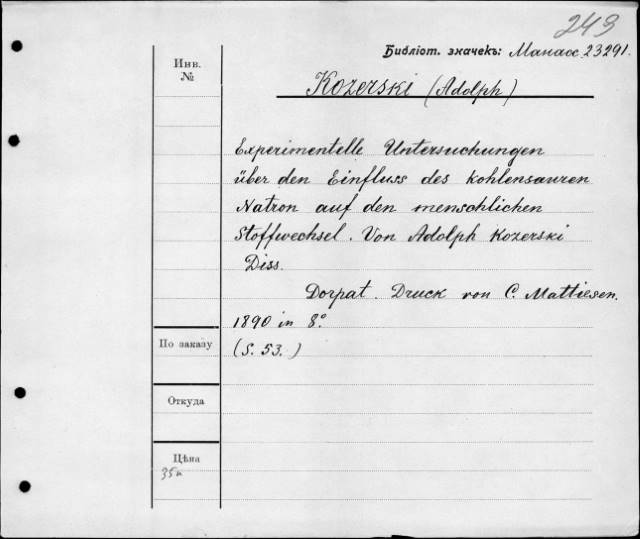 249
Библіот. значекъ: Манасс 23291.
Инв.
№
Kozerski (Adolph)
Experimentelle Untersuchungen
über den Einfluss des kohlensauren
Natron auf den menschlichen
Stoffwechsel. Von Adolph Kozerski
Diss.
Dorpat. Druck von C. Mattiesen.
1890 in 8°.
По заказу
(S. 53.)
Откуда
Цѣна
35к